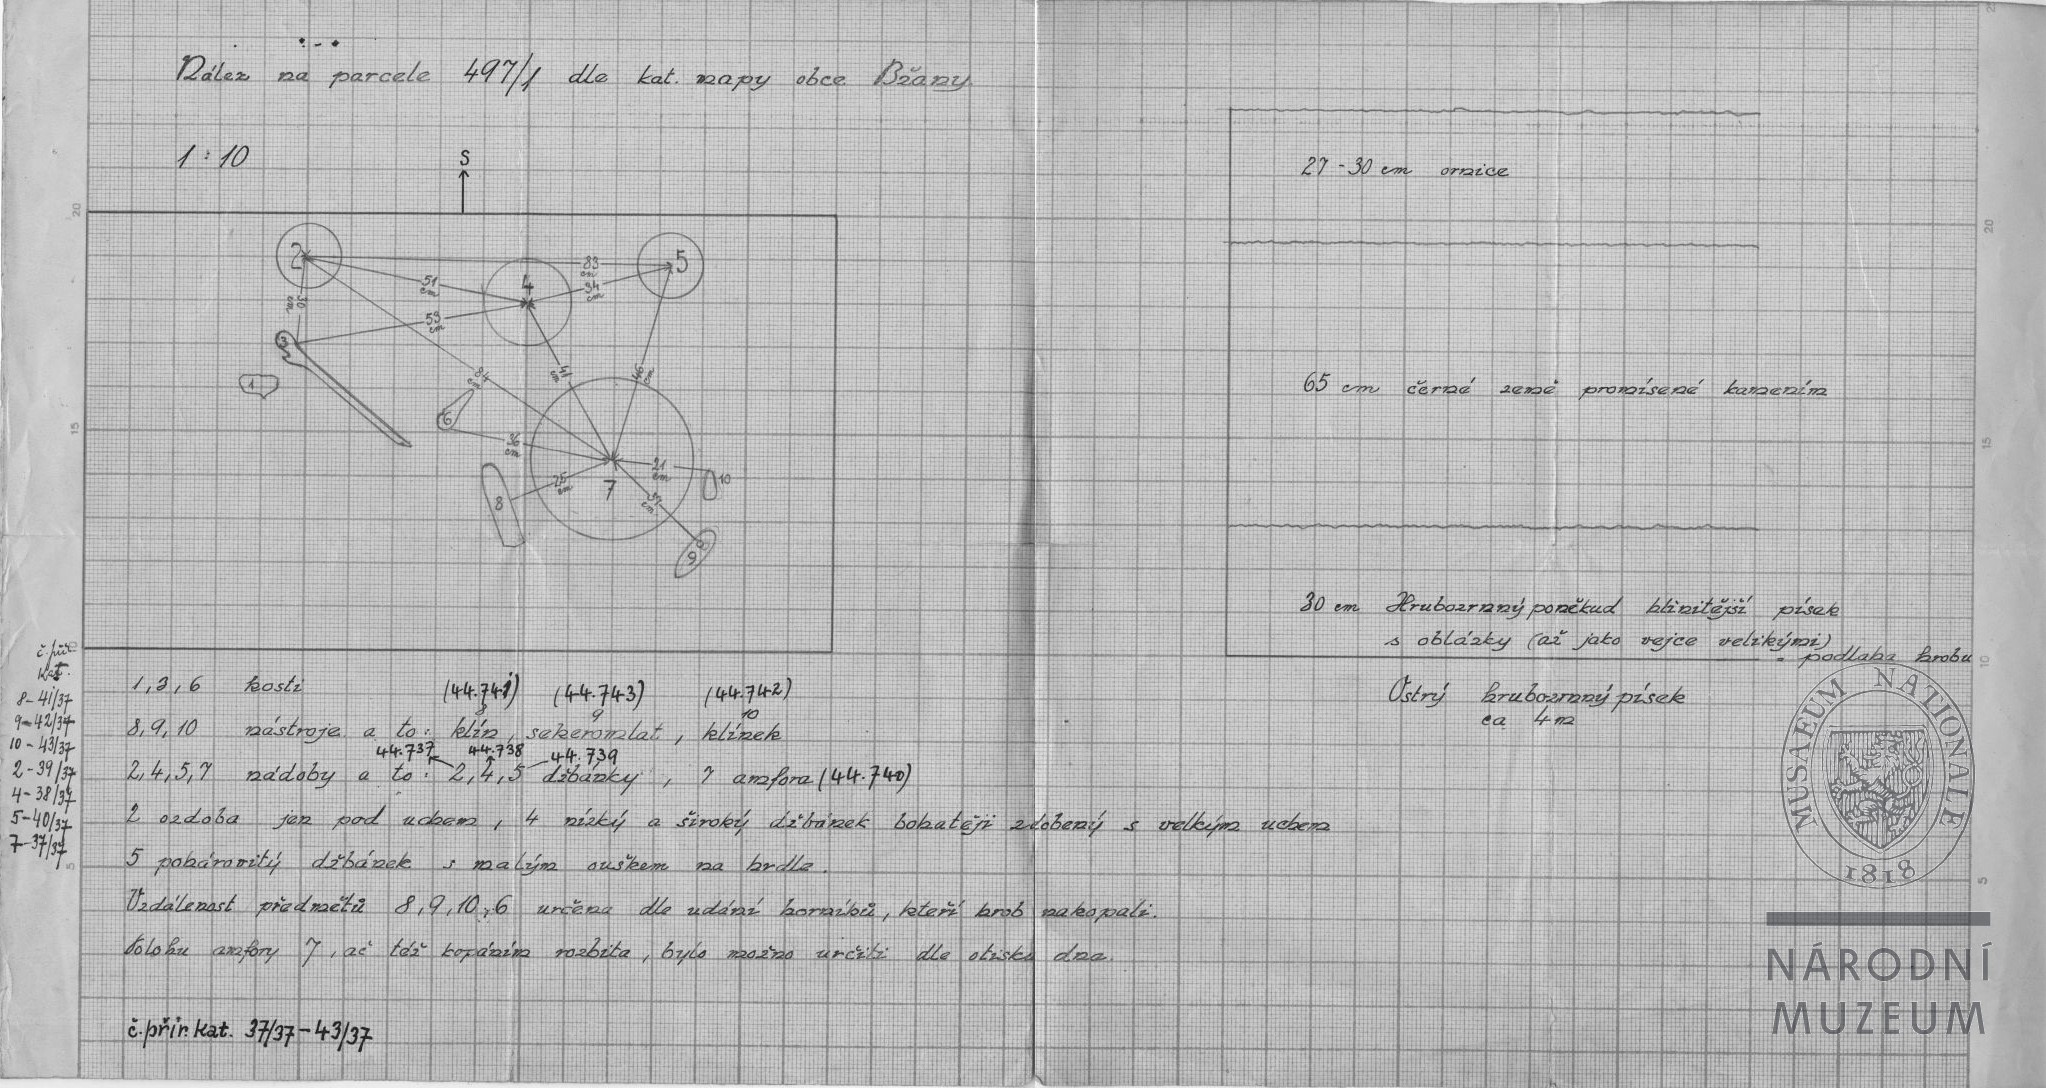 Nález na parcele 497/1 dle kat. mapy obce Břany.
1 : 10
S
2
83 cm
5
51 cm
4
34 cm
30 cm
53 cm
3
1
84 cm
41 cm
46 cm
6
36 cm
21 cm
10
25 cm
7
8
37 cm
9
27 - 30 cm ornice
65 cm černé země promísené kamením
30 cm Hrubozrnný poněkud hlinitější písek
s oblázky (až jako vejce velikými)
= podlaha hrobu
Ostrý hrubozrnný písek
ca 4 m
č. přír.
kat.
8 - 41/37
9 - 42/37
10 - 43/37
2 - 39/37
4 - 38/37
5 - 40/37
7 - 37/37
1, 3, 6 kosti (44.741) (44.743) (44.742)
8 9 10
8, 9, 10 nástroje a to: klín, sekeromlat, klínek
44.737 44.738 44.739
2, 4, 5, 7 nádoby a to: 2, 4, 5 džbánky, 7 amfora (44.740)
2 ozdoba jen pod uchem, 4 nízký a široký džbánek bohatěji zdobený s velkým uchem
5 pohárovitý džbánek s malým ouškem na hrdle.
Vzdálenost předmětů 8, 9, 10, 6 určena dle udání horníků, kteří hrob nakopali.
Polohu amfory 7, ač též kopáním rozbita, bylo možno určiti dle otisku dna.
č. přír. kat. 37/37 - 43/37
MUSAEUM NATIONALE
1818
NÁRODNÍ
MUZEUM
20
15
10
5
25
20
15
10
5